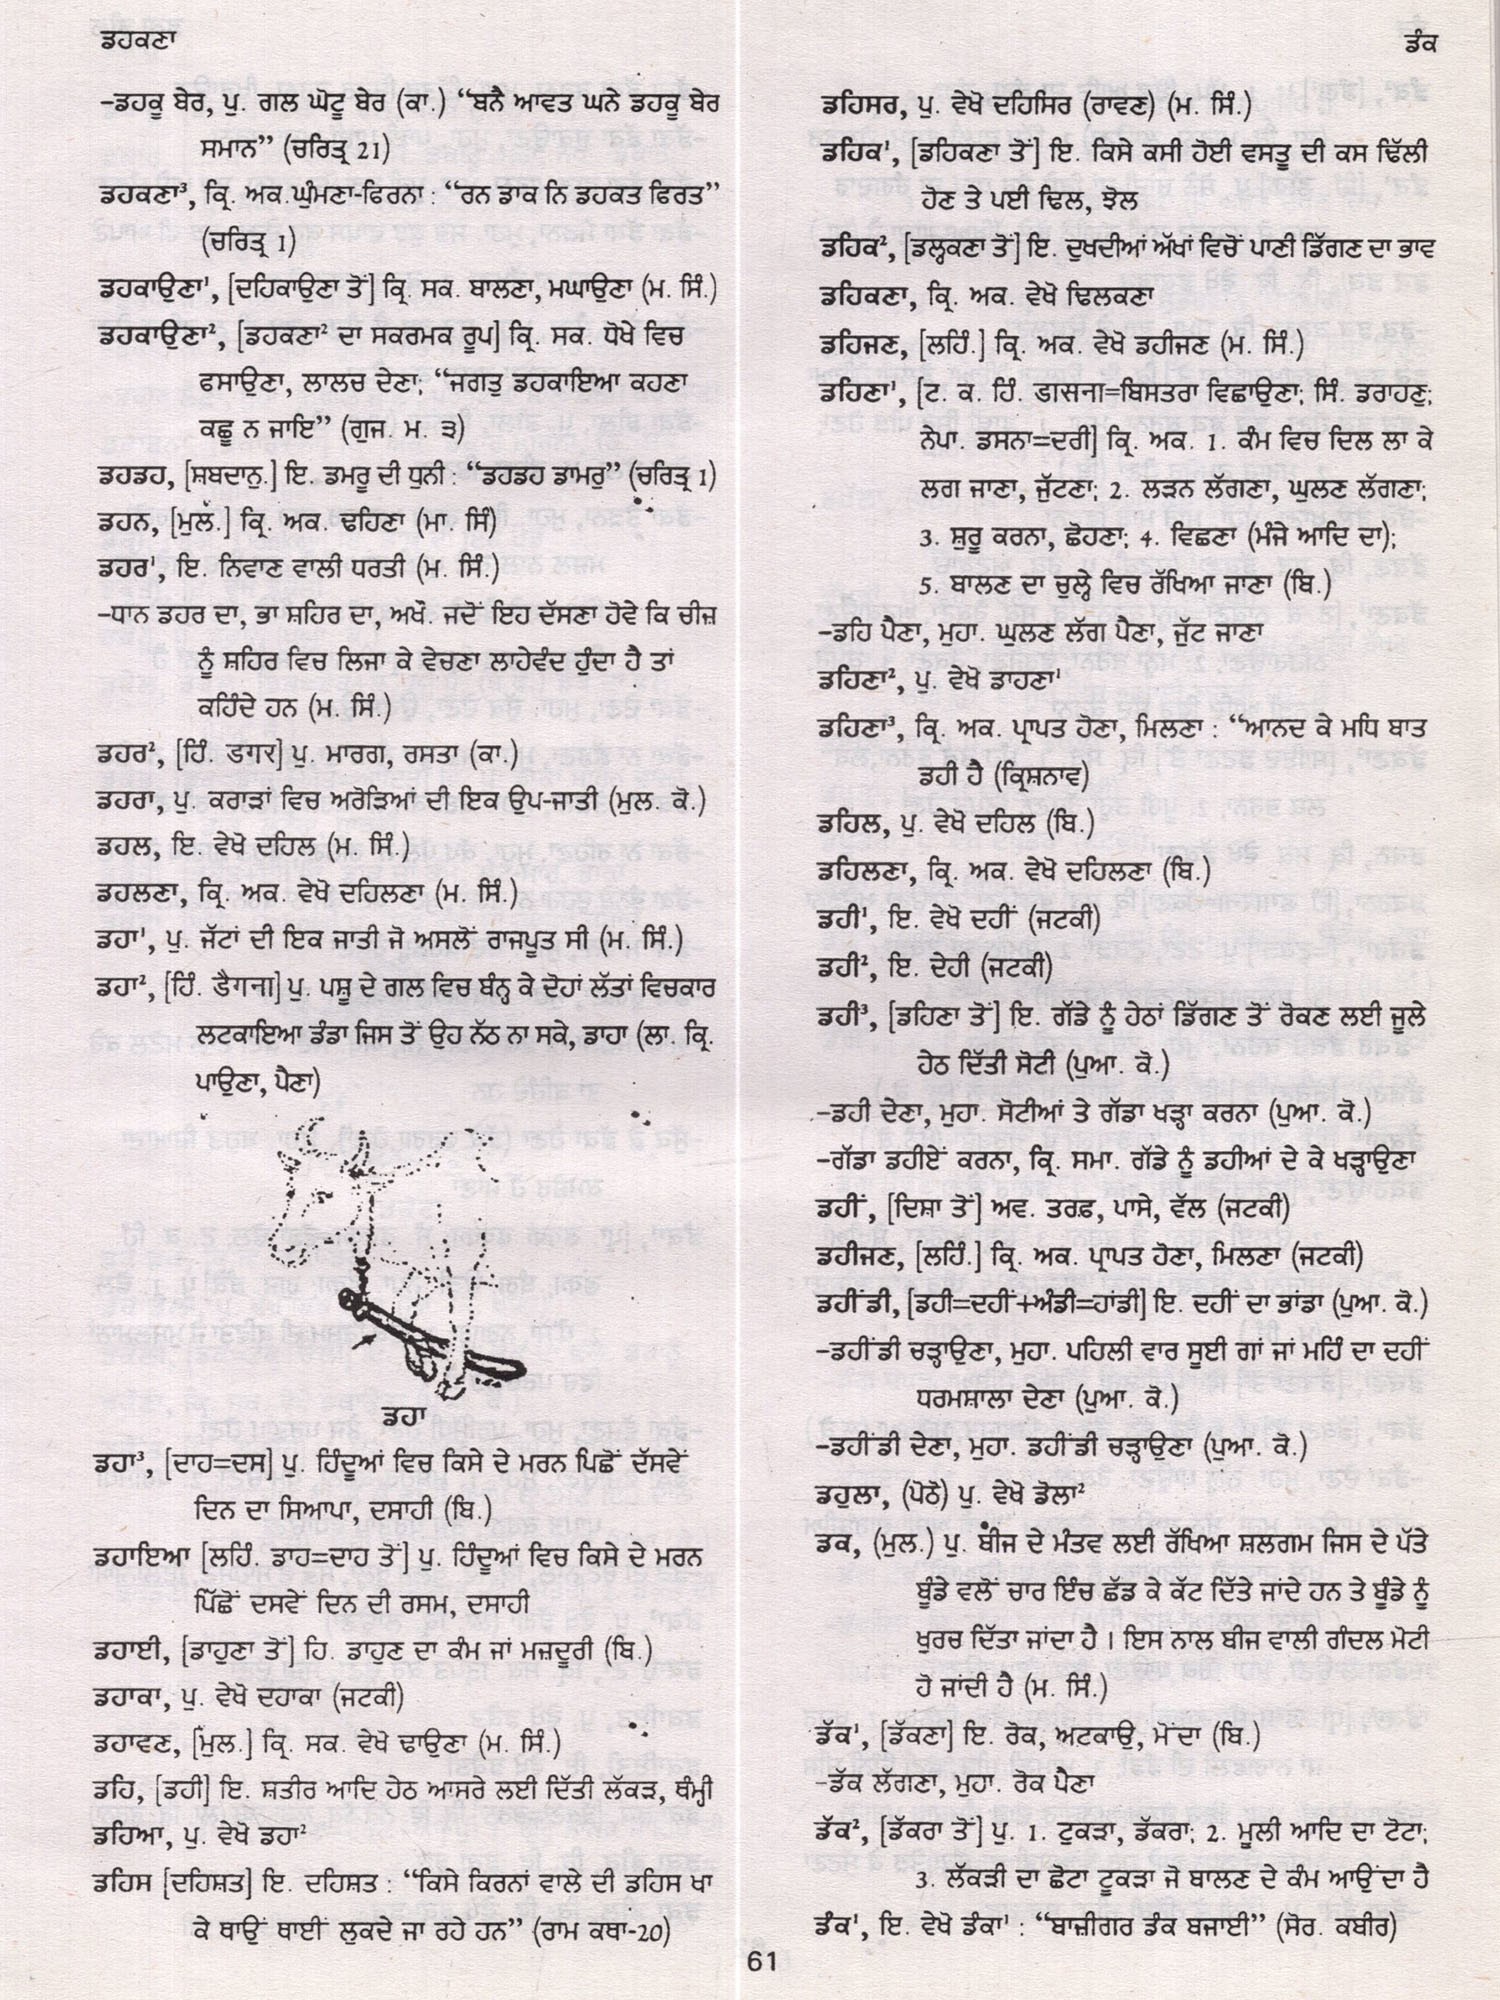 ਡਹਕਣਾ
ਡੰਕ
–ਡਹਕੂ ਬੇਰ, ਪੁ. ਗਲ ਘੋਟੂ ਬੇਰ (ਕਾ.) “ਬਨੈ ਆਵਤ ਘਨੇ ਡਹਕੂ ਬੇਰ
ਸਮਾਨ” (ਚਰਿਤ੍ਰ 21)
ਡਹਕਣਾ³, ਕ੍ਰਿ. ਅਕ.ਘੁੰਮਣਾ-ਫਿਰਨਾ : “ਰਨ ਡਾਕ ਨਿ ਡਹਕਤ ਫਿਰਤ”
(ਚਰਿਤ੍ਰ 1)
ਡਹਕਾਉਣਾ¹, [ਦਹਿਕਾਉਣਾ ਤੋਂ] ਕ੍ਰਿ. ਸਕ. ਬਾਲਣਾ, ਮਘਾਉਣਾ (ਮ. ਸਿੰ.)
ਡਹਕਾਉਣਾ², [ਡਹਕਣਾ² ਦਾ ਸਕਰਮਕ ਰੂਪ] ਕ੍ਰਿ. ਸਕ. ਧੋਖੇ ਵਿਚ
ਫਸਾਉਣਾ, ਲਾਲਚ ਦੇਣਾ; “ਜਗਤੁ ਡਹਕਾਇਆ ਕਹਣਾ
ਕਛੂ ਨ ਜਾਇ” (ਗੁਜ. ਮ. ੩)
ਡਹਡਹ, [ਸ਼ਬਦਾਨੁ.] ਇ. ਡਮਰੂ ਦੀ ਧੁਨੀ : “ਡਹਡਹ ਡਾਮਰੁ” (ਚਰਿਤ੍ਰ 1)
ਡਹਨ, [ਮੁਲ.] ਕ੍ਰਿ. ਅਕ. ਢਹਿਣਾ (ਮਾ. ਸਿੰ)
ਡਹਰ¹, ਇ. ਨਿਵਾਣ ਵਾਲੀ ਧਰਤੀ (ਮ. ਸਿੰ.)
–ਧਾਨ ਡਹਰ ਦਾ, ਭਾ ਸ਼ਹਿਰ ਦਾ, ਅਖੌ. ਜਦੋਂ ਇਹ ਦੱਸਣਾ ਹੋਵੇ ਕਿ ਚੀਜ਼
ਨੂੰ ਸ਼ਹਿਰ ਵਿਚ ਲਿਜਾ ਕੇ ਵੇਚਣਾ ਲਾਹੇਵੰਦ ਹੁੰਦਾ ਹੈ ਤਾਂ
ਕਹਿੰਦੇ ਹਨ (ਮ. ਸਿੰ.)
ਡਹਰ², [ਹਿੰ. डगर] ਪੁ. ਮਾਰਗ, ਰਸਤਾ (ਕਾ.)
ਡਹਰਾ, ਪੁ. ਕਰਾੜਾਂ ਵਿਚ ਅਰੋੜਿਆਂ ਦੀ ਇਕ ਉਪ-ਜਾਤੀ (ਮੁਲ. ਕੋ.)
ਡਹਲ, ਇ. ਵੇਖੋ ਦਹਿਲ (ਮ. ਸਿੰ.)
ਡਹਲਣਾ, ਕ੍ਰਿ. ਅਕ. ਵੇਖੋ ਦਹਿਲਣਾ (ਮ. ਸਿੰ.)
ਡਹਾ¹, ਪੁ. ਜੱਟਾਂ ਦੀ ਇਕ ਜਾਤੀ ਜੋ ਅਸਲੋਂ ਰਾਜਪੂਤ ਸੀ (ਮ. ਸਿੰ.)
ਡਹਾ², [ਹਿੰ. डैगना] ਪੁ. ਪਸ਼ੂ ਦੇ ਗਲ ਵਿਚ ਬੰਨ੍ਹ ਕੇ ਦੋਹਾਂ ਲੱਤਾਂ ਵਿਚਕਾਰ
ਲਟਕਾਇਆ ਡੰਡਾ ਜਿਸ ਤੋਂ ਉਹ ਨੱਠ ਨਾ ਸਕੇ, ਡਾਹਾ (ਲਾ. ਕ੍ਰਿ.
ਪਾਉਣਾ, ਪੈਣਾ)
ਡਹਾ
ਡਹਾ³, [ਦਾਹ=ਦਸ] ਪੁ. ਹਿੰਦੂਆਂ ਵਿਚ ਕਿਸੇ ਦੇ ਮਰਨ ਪਿਛੋਂ ਦੱਸਵੇਂ
ਦਿਨ ਦਾ ਸਿਆਪਾ, ਦਸਾਹੀ (ਬਿ.)
ਡਹਾਇਆ [ਲਹਿੰ. ਡਾਹ=ਦਾਹ ਤੋਂ] ਪੁ. ਹਿੰਦੂਆਂ ਵਿਚ ਕਿਸੇ ਦੇ ਮਰਨ
ਪਿੱਛੋਂ ਦਸਵੇਂ ਦਿਨ ਦੀ ਰਸਮ, ਦਸਾਹੀ
ਡਹਾਈ, [ਡਾਹੁਣਾ ਤੋਂ] ਹਿ. ਡਾਹੁਣ ਦਾ ਕੰਮ ਜਾਂ ਮਜ਼ਦੂਰੀ (ਬਿ.)
ਡਹਾਕਾ, ਪੁ. ਵੇਖੋ ਦਹਾਕਾ (ਜਟਕੀ)
ਡਹਾਵਣ, [ਮੁਲ.] ਕ੍ਰਿ. ਸਕ. ਵੇਖੋ ਢਾਉਣਾ (ਮ. ਸਿੰ.)
ਡਹਿ, [ਡਹੀ] ਇ. ਸ਼ਤੀਰ ਆਦਿ ਹੇਠ ਆਸਰੇ ਲਈ ਦਿੱਤੀ ਲੱਕੜ, ਥੰਮ੍ਹੀ
ਡਹਿਆ, ਪੁ. ਵੇਖੋ ਡਹਾ²
ਡਹਿਸ [ਦਹਿਸ਼ਤ] ਇ. ਦਹਿਸ਼ਤ : “ਕਿਸੇ ਕਿਰਨਾਂ ਵਾਲੇ ਦੀ ਡਹਿਸ ਖਾ
ਕੇ ਥਾਉਂ ਥਾਈਂ ਲੁਕਦੇ ਜਾ ਰਹੇ ਹਨ” (ਰਾਮ ਕਥਾ-20)
ਡਹਿਸਰ, ਪੁ. ਵੇਖੋ ਦਹਿਸਿਰ (ਰਾਵਣ) (ਮ. ਸਿੰ.)
ਡਹਿਕ¹, [ਡਹਿਕਣਾ ਤੋਂ] ਇ. ਕਿਸੇ ਕਸੀ ਹੋਈ ਵਸਤੂ ਦੀ ਕਸ ਢਿੱਲੀ
ਹੋਣ ਤੇ ਪਈ ਢਿਲ, ਝੋਲ
ਡਹਿਕ², [ਡਲ੍ਹਕਣਾ ਤੋਂ] ਇ. ਦੁਖਦੀਆਂ ਅੱਖਾਂ ਵਿਚੋਂ ਪਾਣੀ ਡਿੱਗਣ ਦਾ ਭਾਵ
ਡਹਿਕਣਾ, ਕ੍ਰਿ. ਅਕ. ਵੇਖੋ ਢਿਲਕਣਾ
ਡਹਿਜਣ, [ਲਹਿੰ.] ਕ੍ਰਿ. ਅਕ. ਵੇਖੋ ਡਹੀਜਣ (ਮ. ਸਿੰ.)
ਡਹਿਣਾ¹, [ਟ. ਕ. ਹਿੰ. डासना=ਬਿਸਤਰਾ ਵਿਛਾਉਣਾ; ਸਿੰ. ਡਰਾਹਣੁ;
ਨੇਪਾ. ਡਸਨਾ=ਦਰੀ] ਕ੍ਰਿ. ਅਕ. 1. ਕੰਮ ਵਿਚ ਦਿਲ ਲਾ ਕੇ
ਲਗ ਜਾਣਾ, ਜੁੱਟਣਾ; 2. ਲੜਨ ਲੱਗਣਾ, ਘੁਲਣ ਲੱਗਣਾ;
3. ਸ਼ੁਰੂ ਕਰਨਾ, ਛੋਹਣਾ; 4. ਵਿਛਣਾ (ਮੰਜੇ ਆਦਿ ਦਾ);
5. ਬਾਲਣ ਦਾ ਚੁਲ੍ਹੇ ਵਿਚ ਰੱਖਿਆ ਜਾਣਾ (ਬਿ.)
–ਡਹਿ ਪੈਣਾ, ਮੁਹਾ. ਘੁਲਣ ਲੱਗ ਪੈਣਾ, ਜੁੱਟ ਜਾਣਾ
ਡਹਿਣਾ², ਪੁ. ਵੇਖੋ ਡਾਹਣਾ¹
ਡਹਿਣਾ³, ਕ੍ਰਿ. ਅਕ. ਪ੍ਰਾਪਤ ਹੋਣਾ, ਮਿਲਣਾ : “ਆਨਦ ਕੇ ਮਧਿ ਬਾਤ
ਡਹੀ ਹੈ (ਕ੍ਰਿਸ਼ਨਾਵ)
ਡਹਿਲ, ਪੁ. ਵੇਖੋ ਦਹਿਲ (ਬਿ.)
ਡਹਿਲਣਾ, ਕ੍ਰਿ. ਅਕ. ਵੇਖੋ ਦਹਿਲਣਾ (ਬਿ.)
ਡਹੀ¹, ਇ. ਵੇਖੋ ਦਹੀਂ (ਜਟਕੀ)
ਡਹੀ², ਇ. ਦੇਹੀ (ਜਟਕੀ)
ਡਹੀ³, [ਡਹਿਣਾ ਤੋਂ] ਇ. ਗੱਡੇ ਨੂੰ ਹੇਠਾਂ ਡਿੱਗਣ ਤੋਂ ਰੋਕਣ ਲਈ ਜੂਲੇ
ਹੇਠ ਦਿੱਤੀ ਸੋਟੀ (ਪੁਆ. ਕੋ.)
–ਡਹੀ ਦੇਣਾ, ਮੁਹਾ. ਸੋਟੀਆਂ ਤੇ ਗੱਡਾ ਖੜ੍ਹਾ ਕਰਨਾ (ਪੁਆ. ਕੋ.)
–ਗੱਡਾ ਡਹੀਏਂ ਕਰਨਾ, ਕ੍ਰਿ. ਸਮਾ. ਗੱਡੇ ਨੂੰ ਡਹੀਆਂ ਦੇ ਕੇ ਖੜ੍ਹਾਉਣਾ
ਡਹੀਂ, [ਦਿਸ਼ਾ ਤੋਂ] ਅਵ. ਤਰਫ਼, ਪਾਸੇ, ਵੱਲ (ਜਟਕੀ)
ਡਹੀਜਣ, [ਲਹਿੰ.] ਕ੍ਰਿ. ਅਕ. ਪ੍ਰਾਪਤ ਹੋਣਾ, ਮਿਲਣਾ (ਜਟਕੀ)
ਡਹੀਂਡੀ, [ਡਹੀ=ਦਹੀਂ+ਅੰਡੀ=ਹਾਂਡੀ] ਇ. ਦਹੀਂ ਦਾ ਭਾਂਡਾ (ਪੁਆ. ਕੋ.)
–ਡਹੀਂਡੀ ਚੜ੍ਹਾਉਣਾ, ਮੁਹਾ. ਪਹਿਲੀ ਵਾਰ ਸੂਈ ਗਾਂ ਜਾਂ ਮਹਿੰ ਦਾ ਦਹੀਂ
ਧਰਮਸ਼ਾਲਾ ਦੇਣਾ (ਪੁਆ. ਕੋ.)
–ਡਹੀਂਡੀ ਦੇਣਾ, ਮੁਹਾ. ਡਹੀਂਡੀ ਚੜ੍ਹਾਉਣਾ (ਪੁਆ. ਕੋ.)
ਡਹੁਲਾ, (ਪੋਠੋ) ਪੁ. ਵੇਖੋ ਡੋਲਾ²
ਡਕ, (ਮੁਲ.) ਪੁ. ਬੀਜ ਦੇ ਮੰਤਵ ਲਈ ਰੱਖਿਆ ਸ਼ਲਗਮ ਜਿਸ ਦੇ ਪੱਤੇ
ਬੂੰਡੇ ਵਲੋਂ ਚਾਰ ਇੰਚ ਛੱਡ ਕੇ ਕੱਟ ਦਿੱਤੇ ਜਾਂਦੇ ਹਨ ਤੇ ਬੂੰਡੇ ਨੂੰ
ਖੁਰਚ ਦਿੱਤਾ ਜਾਂਦਾ ਹੈ । ਇਸ ਨਾਲ ਬੀਜ ਵਾਲੀ ਗੰਦਲ ਮੋਟੀ
ਹੋ ਜਾਂਦੀ ਹੈ (ਮ. ਸਿੰ.)
ਡੱਕ¹, [ਡੱਕਣਾ] ਇ. ਰੋਕ, ਅਟਕਾਉ, ਮੋਂਦਾ (ਬਿ.)
–ਡੱਕ ਲੱਗਣਾ, ਮੁਹਾ. ਰੋਕ ਪੈਣਾ
ਡੱਕ², [ਡੱਕਰਾ ਤੋਂ] ਪੁ. 1. ਟੁਕੜਾ, ਡੱਕਰਾ; 2. ਮੂਲੀ ਆਦਿ ਦਾ ਟੋਟਾ;
3. ਲੱਕੜੀ ਦਾ ਛੋਟਾ ਟੂਕੜਾ ਜੋ ਬਾਲਣ ਦੇ ਕੰਮ ਆਉਂਦਾ ਹੈ
ਡੰਕ¹, ਇ. ਵੇਖੋ ਡੰਕਾ¹ : “ਬਾਜ਼ੀਗਰ ਡੰਕ ਬਜਾਈ” (ਸੋਰ. ਕਬੀਰ)
61